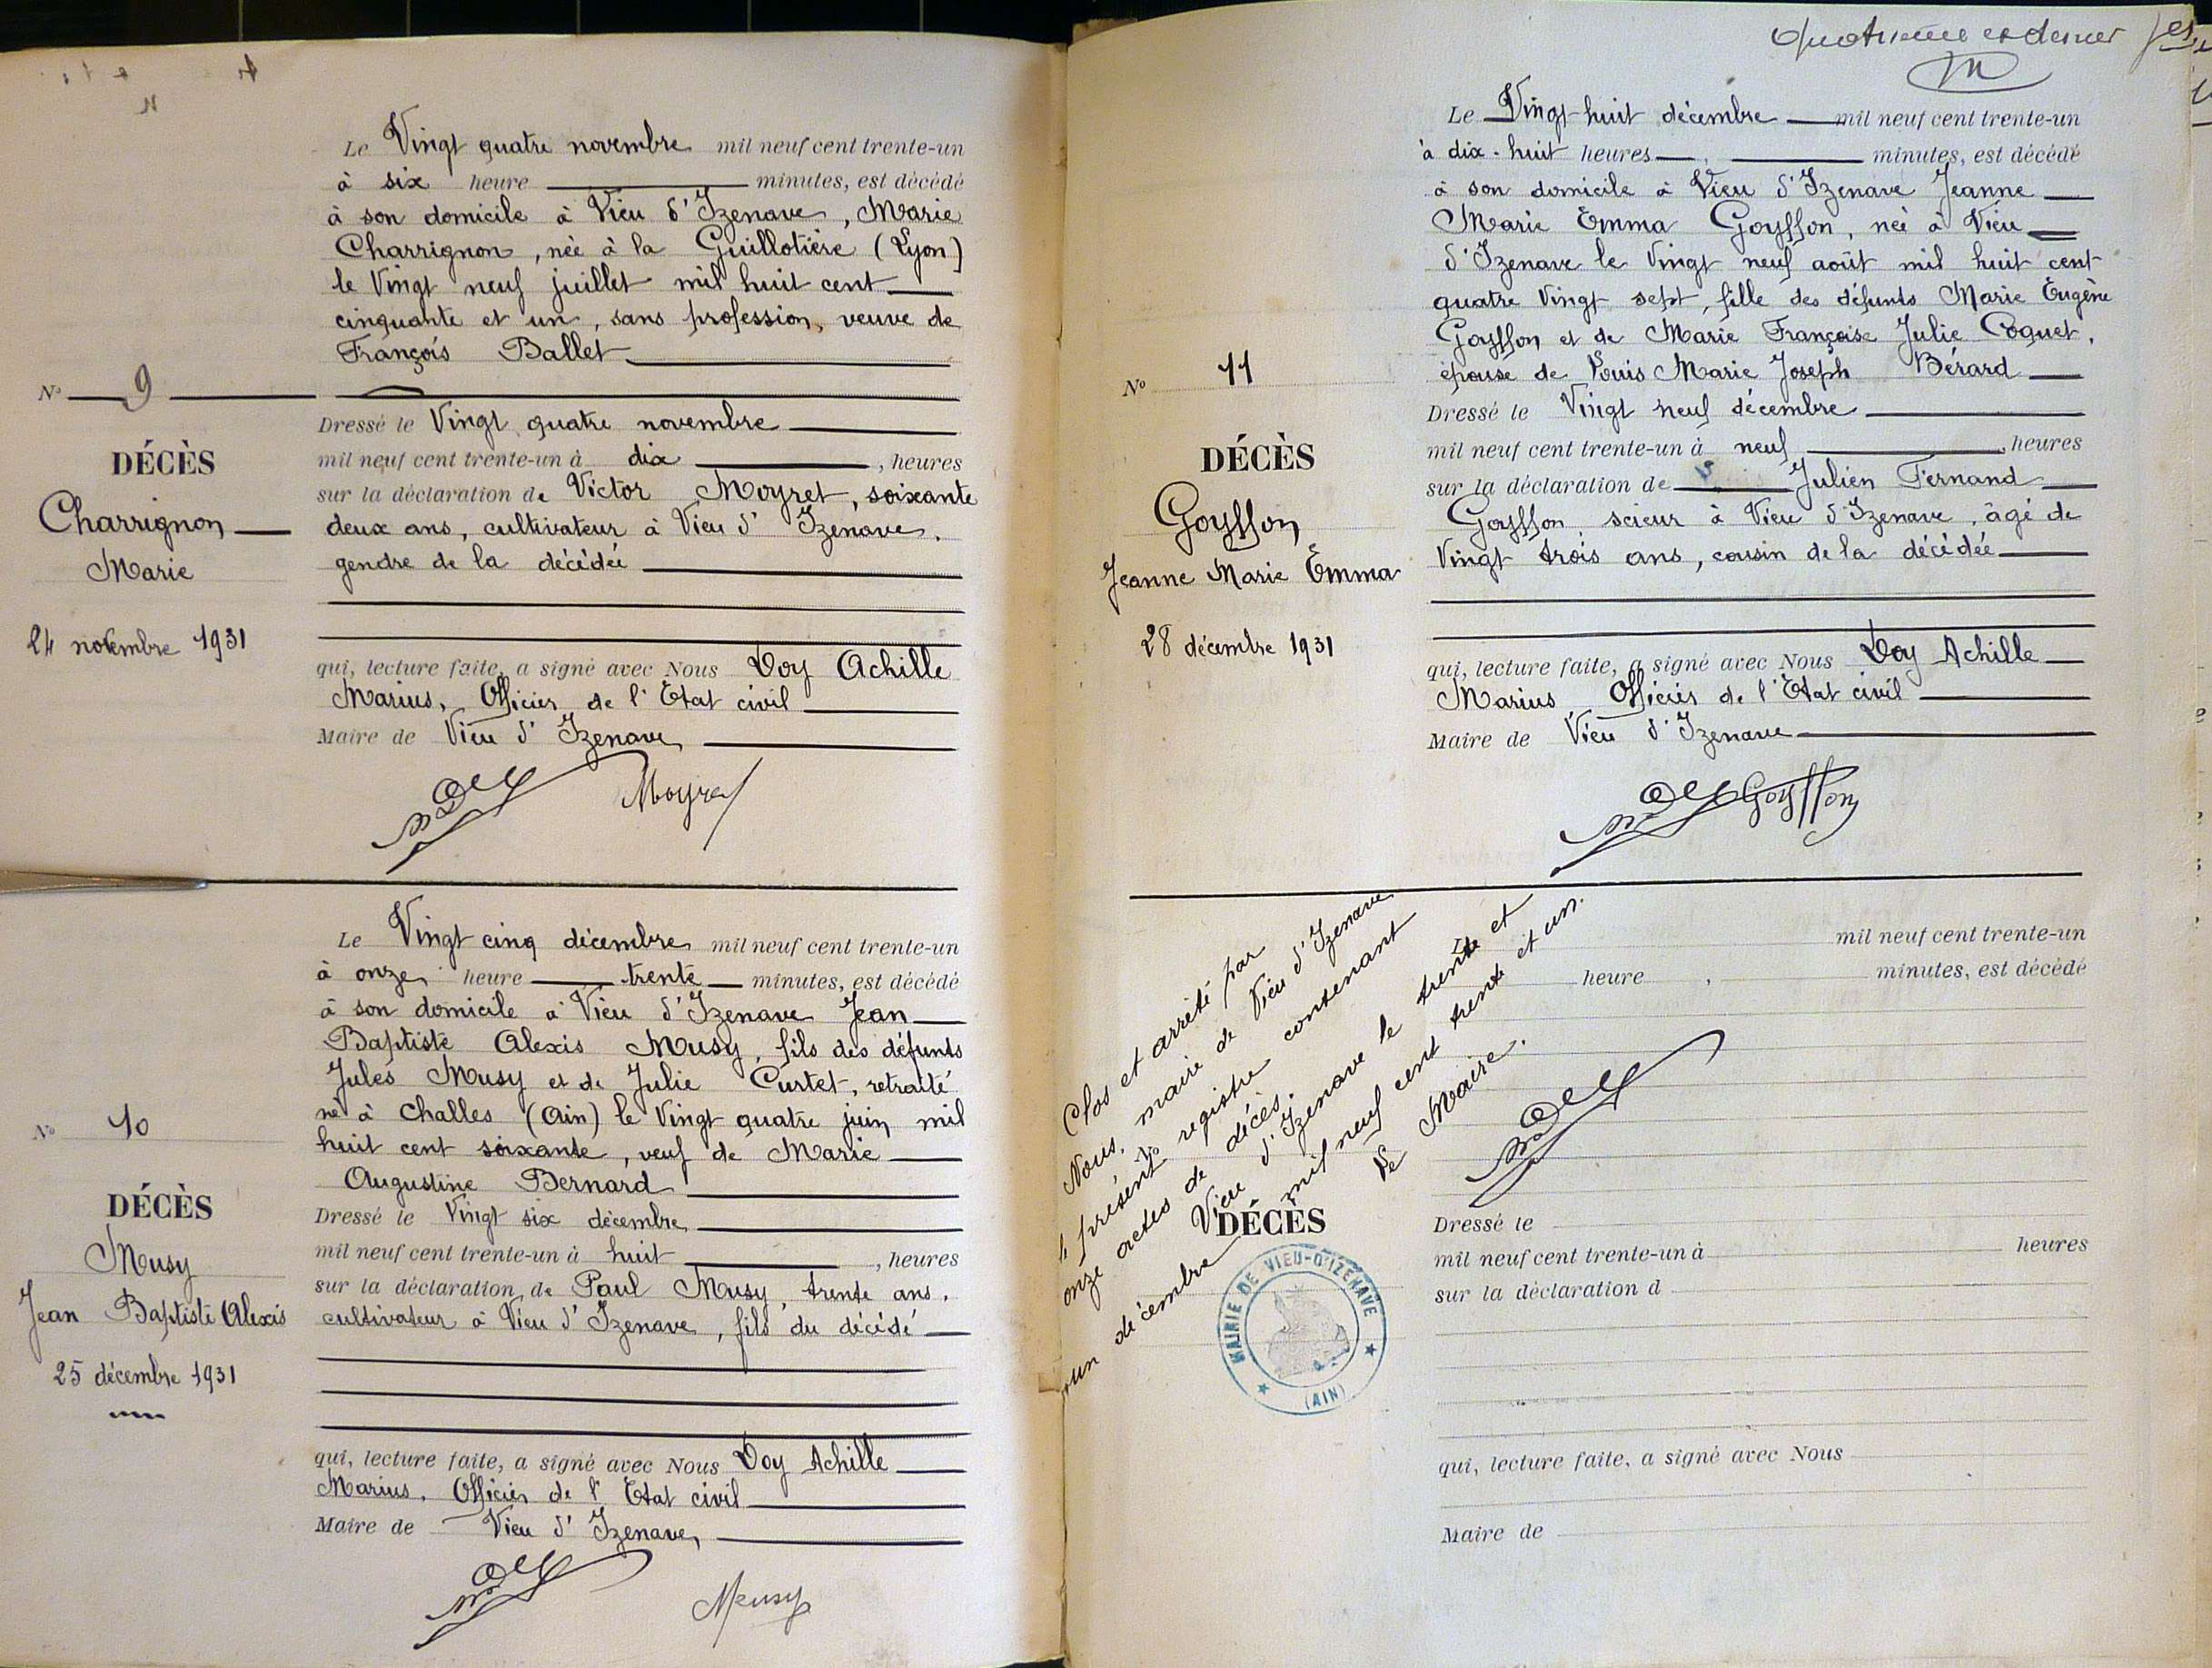 Le Vingt quatre novembre mil neuf cent trente-un
à six heure minutes, est décédé
à son domicile à Vieu d'Izenave, Marie
Charrignon, née à la Guillotière (Lyon)
le Vingt neuf juillet mil huit cent
cinquante et un, sans profession, veuve de
François Ballet
No 9
DÉCÈS
Charrignon
Marie
24 novembre 1931
Dressé le Vingt quatre novembre
mil neuf cent trente-un à dix , heures
sur la déclaration de Victor Moyret, soixante
deux ans, cultivateur à Vieu d'Izenave,
gendre de la décédée
qui, lecture faite, a signé avec Nous Doy Achille
Marius, Officier de l'Etat civil
Maire de Vieu d'Izenave
Moyret
Le Vingt cinq décembre mil neuf cent trente-un
à onze heure trente minutes, est décédé
à son domicile à Vieu d'Izenave Jean
Baptiste Alexis Musy, fils des défunts
Jules Musy et de Julie Curtet, retraité
né à Challes (Ain) le Vingt quatre juin mil
huit cent soixante, veuf de Marie
Augustine Bernard
No 10
DÉCÈS
Musy
Jean Baptiste Alexis
25 décembre 1931
Dressé le Vingt six décembre
mil neuf cent trente-un à huit , heures
sur la déclaration de Paul Musy, trente ans,
cultivateur à Vieu d'Izenave, fils du décédé
qui, lecture faite, a signé avec Nous Doy Achille
Marius, Officier de l'Etat civil
Maire de Vieu d'Izenave
Musy
Quatrième et dernier
Le Vingt-huit décembre mil neuf cent trente-un
à dix-huit heures , minutes, est décédé
à son domicile à Vieu d'Izenave Jeanne
Marie Emma Goyffon, née à Vieu
d'Izenave le Vingt neuf août mil huit cent
quatre Vingt sept, fille des défunts Marie Eugène
Goyffon et de Marie Françoise Julie Coquet,
épouse de Louis Marie Joseph Bérard
No 11
DÉCÈS
Goyffon
Jeanne Marie Emma
28 décembre 1931
Dressé le Vingt neuf décembre
mil neuf cent trente-un à neuf , heures
sur la déclaration de Julien Fernand
Goyffon scieur à Vieu d'Izenave, âgé de
Vingt trois ans, cousin de la décédée
qui, lecture faite, a signé avec Nous Doy Achille
Marius Officier de l'Etat civil
Maire de Vieu d'Izenave
Goyffon
Clos et arrêté par
Nous, maire de Vieu d'Izenave
le présent registre contenant
onze actes de décès.
Vieu d'Izenave le trente et
un décembre mil neuf cent trente et un.
Le Maire.
Le mil neuf cent trente-un
heure , minutes, est décédé
No
DÉCÈS
MAIRIE DE VIEU-D'IZENAVE
(AIN)
Dressé le
mil neuf cent trente-un à heures
sur la déclaration d
qui, lecture faite, a signé avec Nous
Maire de